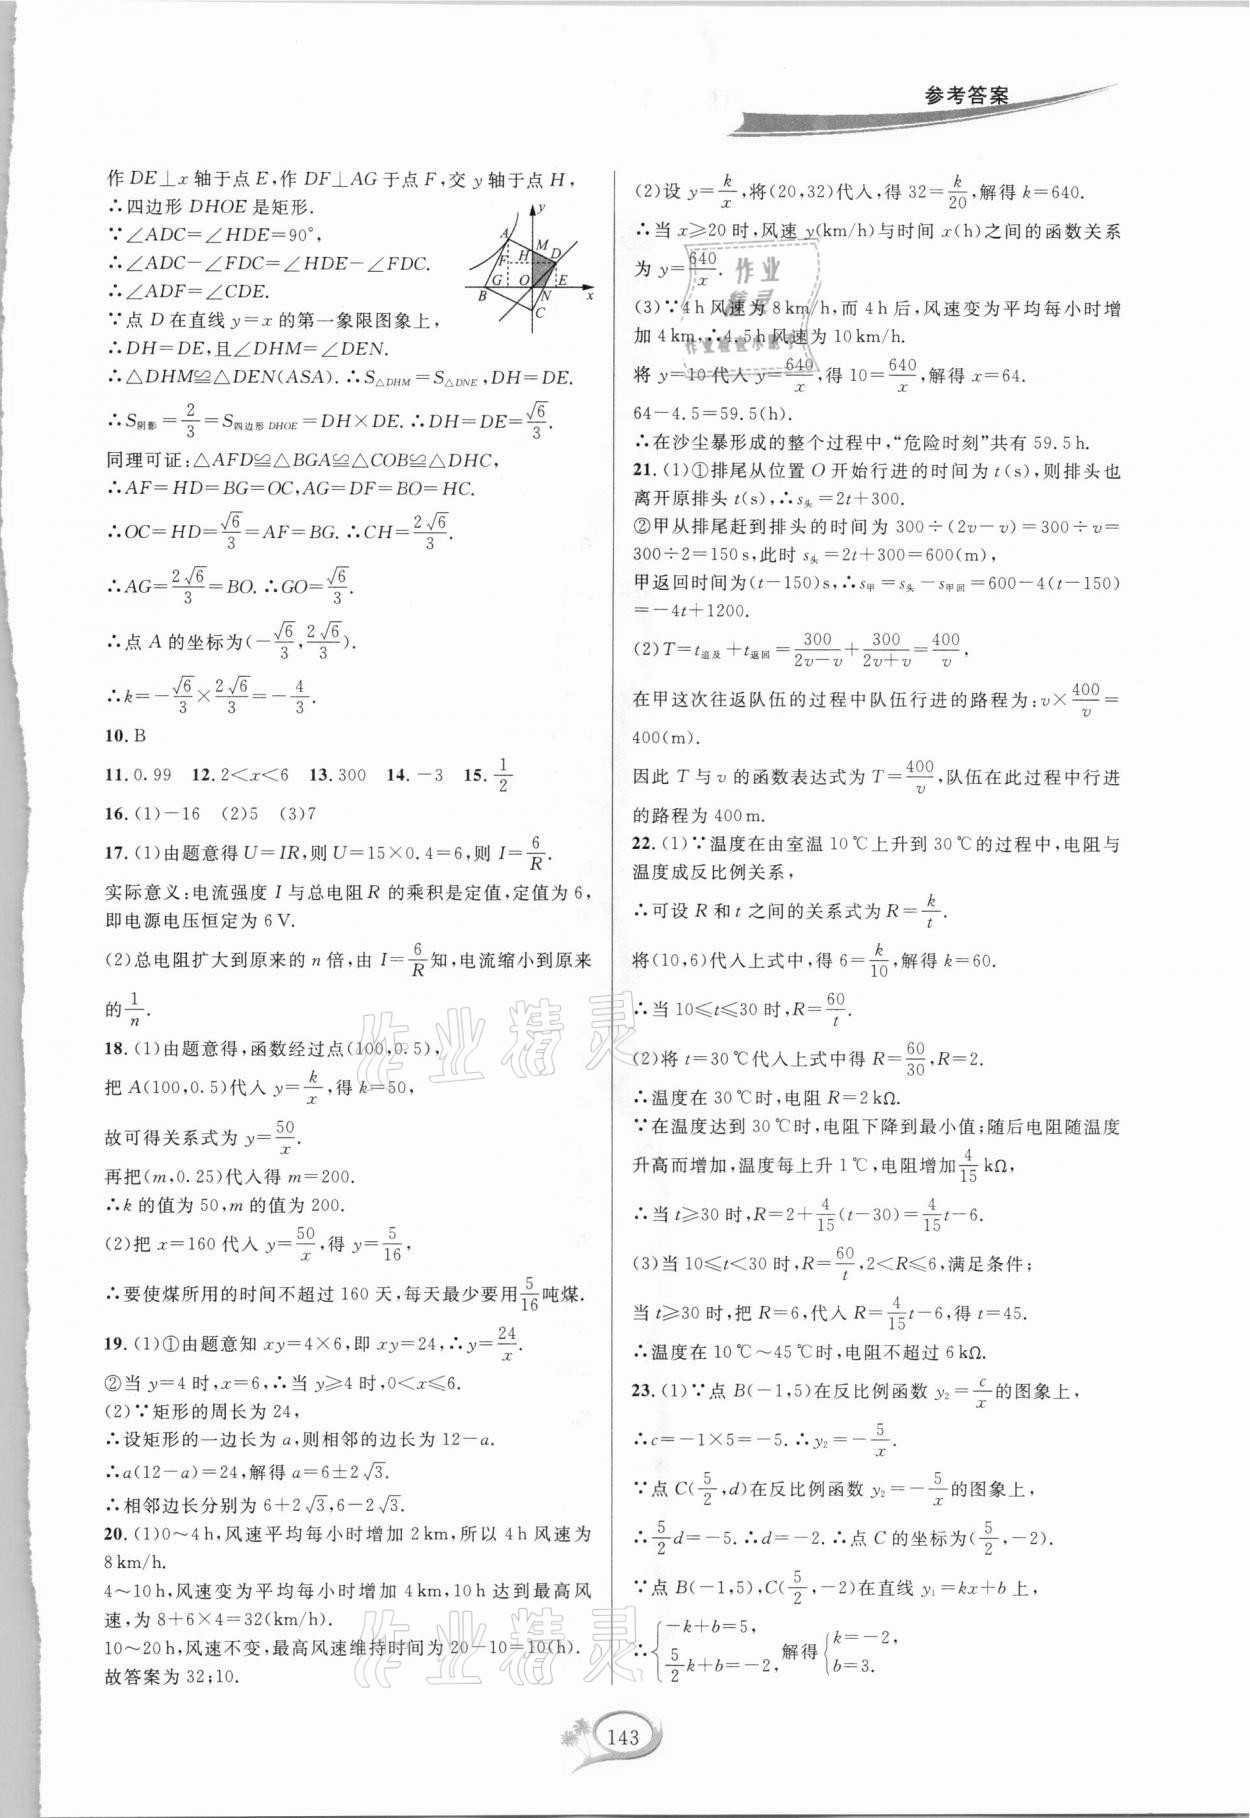 参考答案
作 DE⊥x 轴于点 E,作 DF⊥AG 于点 F,交 y 轴于点 H,
∴四边形 DHOE 是矩形.
∵∠ADC=∠HDE=90°,
∴∠ADC-∠FDC=∠HDE-∠FDC.
∴∠ADF=∠CDE.
∵点 D 在直线 y=x 的第一象限图象上,
∴DH=DE,且∠DHM=∠DEN.
∴△DHM≌△DEN(ASA). ∴S△DHM=S△DNE,DH=DE.
∴S阴影=2/3=S四边形DHOE=DH×DE. ∴DH=DE=√6/3.
同理可证:△AFD≌△BGA≌△COB≌△DHC,
∴AF=HD=BG=OC,AG=DF=BO=HC.
∴OC=HD=√6/3=AF=BG. ∴CH=2√6/3.
∴AG=2√6/3=BO. ∴GO=√6/3.
∴点 A 的坐标为(-√6/3,2√6/3).
∴k=-√6/3×2√6/3=-4/3.
10. B
11. 0.99 12. 2<x<6 13. 300 14. -3 15. 1/2
16. (1)-16 (2)5 (3)7
17. (1)由题意得 U=IR,则 U=15×0.4=6,则 I=6/R.
实际意义:电流强度 I 与总电阻 R 的乘积是定值,定值为 6,
即电源电压恒定为 6 V.
(2)总电阻扩大到原来的 n 倍,由 I=6/R知,电流缩小到原来
的1/n.
18. (1)由题意得,函数经过点(100,0.5),
把 A(100,0.5)代入 y=k/x,得 k=50,
故可得关系式为 y=50/x.
再把(m,0.25)代入得 m=200.
∴k 的值为 50,m 的值为 200.
(2)把 x=160 代入 y=50/x,得 y=5/16,
∴要使煤所用的时间不超过 160 天,每天最少要用5/16吨煤.
19. (1)①由题意知 xy=4×6,即 xy=24,∴y=24/x.
②当 y=4 时,x=6,∴当 y⩾4 时,0<x⩽6.
(2)∵矩形的周长为 24,
∴设矩形的一边长为 a,则相邻的边长为 12-a.
∴a(12-a)=24,解得 a=6±2√3.
∴相邻边长分别为 6+2√3,6-2√3.
20. (1)0~4 h,风速平均每小时增加 2 km,所以 4 h 风速为
8 km/h.
4~10 h,风速变为平均每小时增加 4 km,10 h 达到最高风
速,为 8+6×4=32(km/h).
10~20 h,风速不变,最高风速维持时间为 20-10=10(h).
故答案为 32;10.
(2)设 y=k/x,将(20,32)代入,得 32=k/20,解得 k=640.
∴当 x⩾20 时,风速 y(km/h)与时间 x(h)之间的函数关系
为 y=640/x.
(3)∵4 h 风速为 8 km/h,而 4 h 后,风速变为平均每小时增
加 4 km,∴4.5 h 风速为 10 km/h.
将 y=10 代入 y=640/x,得 10=640/x,解得 x=64.
64-4.5=59.5(h).
∴在沙尘暴形成的整个过程中,“危险时刻”共有 59.5 h.
21. (1)①排尾从位置 O 开始行进的时间为 t(s),则排头也
离开原排头 t(s),∴s头=2t+300.
②甲从排尾赶到排头的时间为 300÷(2v-v)=300÷v=
300÷2=150 s,此时 s头=2t+300=600(m),
甲返回时间为(t-150)s,∴s甲=s头-s甲回=600-4(t-150)
=-4t+1200.
(2)T=t追及+t返回=300/(2v-v)+300/(2v+v)=400/v,
在甲这次往返队伍的过程中队伍行进的路程为:v×400/v=
400(m).
因此 T 与 v 的函数表达式为 T=400/v,队伍在此过程中行进
的路程为 400 m.
22. (1)∵温度在由室温 10 ℃上升到 30 ℃的过程中,电阻与
温度成反比例关系,
∴可设 R 和 t 之间的关系式为 R=k/t.
将(10,6)代入上式中,得 6=k/10,解得 k=60.
∴当 10⩽t⩽30 时,R=60/t.
(2)将 t=30 ℃代入上式中得 R=60/30,R=2.
∴温度在 30 ℃时,电阻 R=2 kΩ.
∵在温度达到 30 ℃时,电阻下降到最小值;随后电阻随温度
升高而增加,温度每上升 1 ℃,电阻增加4/15 kΩ,
∴当 t⩾30 时,R=2+4/15(t-30)=4/15t-6.
(3)当 10⩽t<30 时,R=60/t,2<R⩽6,满足条件;
当 t⩾30 时,把 R=6,代入 R=4/15t-6,得 t=45.
∴温度在 10 ℃~45 ℃时,电阻不超过 6 kΩ.
23. (1)∵点 B(-1,5)在反比例函数 y₂=c/x的图象上,
∴c=-1×5=-5. ∴y₂=-5/x.
∵点 C(5/2,d)在反比例函数 y₂=-5/x的图象上,
∴5/2d=-5. ∴d=-2. ∴点 C 的坐标为(5/2,-2).
∵点 B(-1,5),C(5/2,-2)在直线 y₁=kx+b 上,
∴{-k+b=5, 5/2k+b=-2, 解得{k=-2, b=3.
143